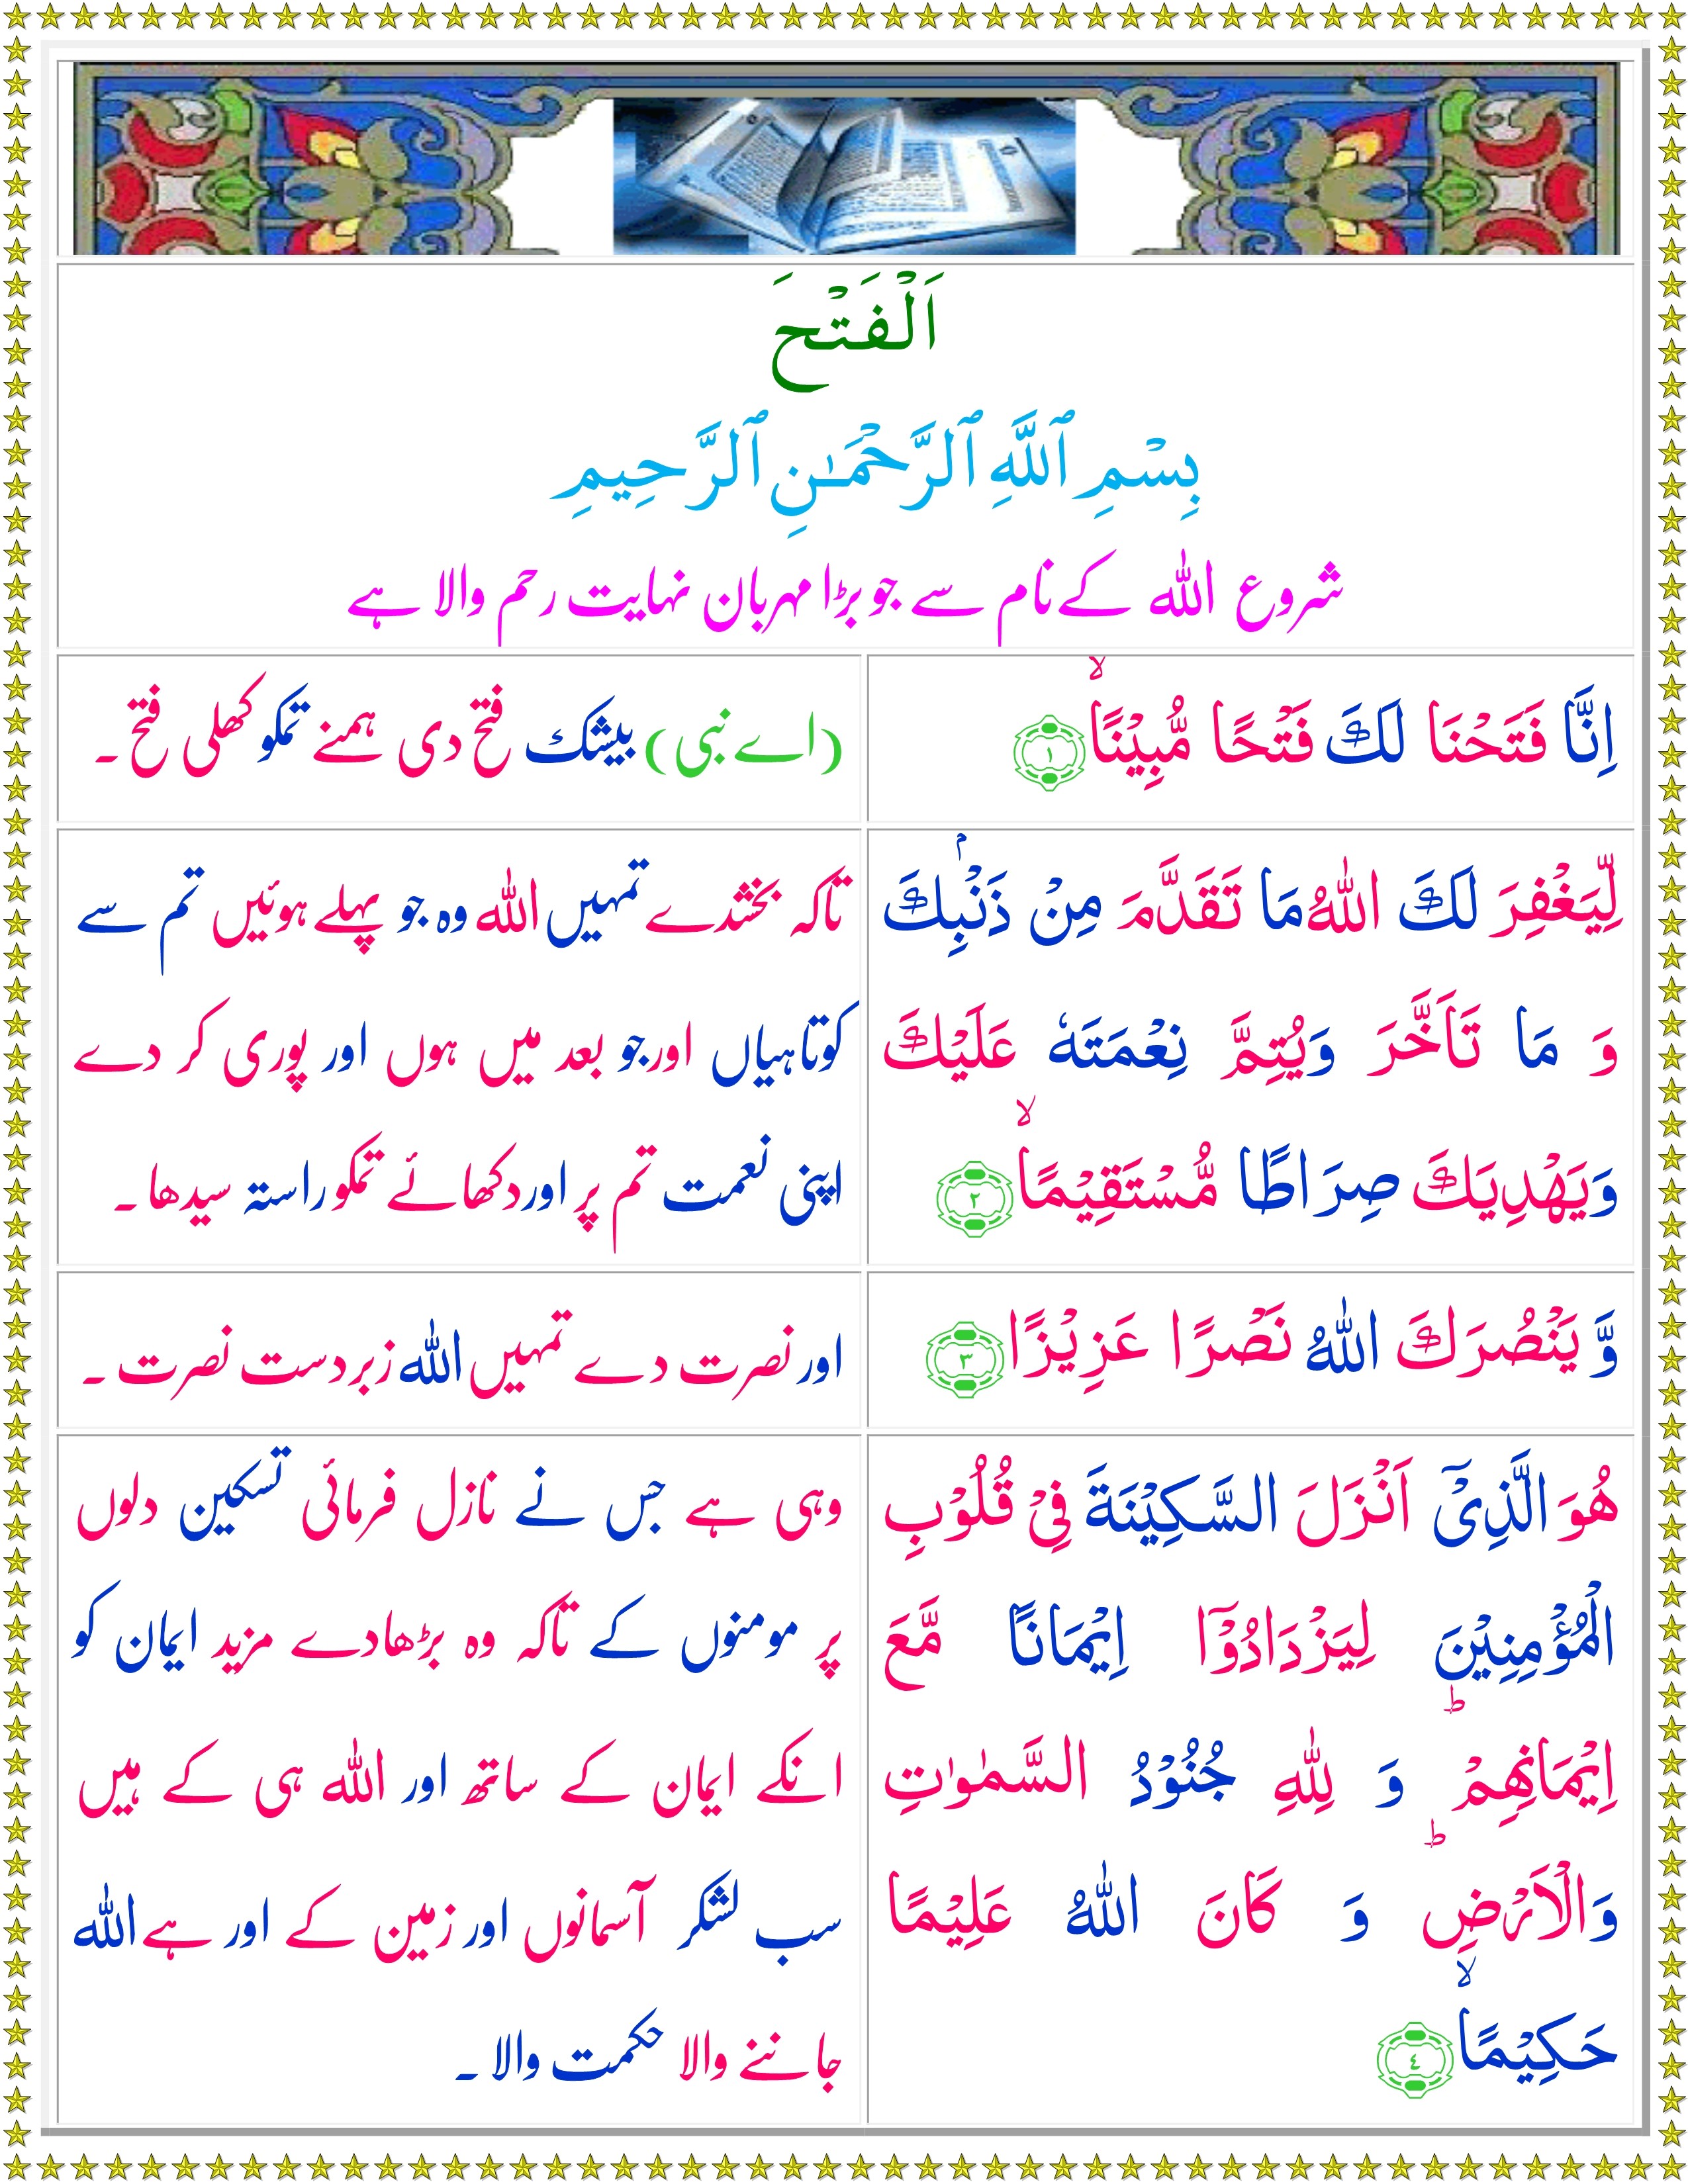 اَلْفَتْحَ
بِسْمِ ٱللَّهِ ٱلرَّحْمَـٰنِ ٱلرَّحِيمِ
شروع اللہ کے نام سے جو بڑا مہربان نہایت رحم والا ہے
اِنَّا فَتَحْنَا لَكَ فَتْحًا مُّبِيْنًاۙ‏ ﴿۱﴾
(اے نبی) بیشک فتح دی ہمنے تمکو کھلی فتح۔
لِّيَغْفِرَ لَكَ اللّٰهُ مَا تَقَدَّمَ مِنْ ذَنْۢبِكَ
وَ مَا تَاَخَّرَ وَيُتِمَّ نِعْمَتَهٗ عَلَيْكَ
وَيَهْدِيَكَ صِرَاطًا مُّسْتَقِيْمًاۙ‏ ﴿۲﴾
تاکہ بخشدے تمہیں اللہ وہ جو پہلے ہوئیں تم سے
کوتاہیاں اور جو بعد میں ہوں اور پوری کر دے
اپنی نعمت تم پر اور دکھائے تمکو راستہ سیدھا۔
وَّ يَنْصُرَكَ اللّٰهُ نَصْرًا عَزِيْزًا‏ ﴿۳﴾
اور نصرت دے تمہیں اللہ زبردست نصرت۔
هُوَ الَّذِىْۤ اَنْزَلَ السَّكِيْنَةَ فِىْ قُلُوْبِ
الْمُؤْمِنِيْنَ لِيَزْدَادُوْۤا اِيْمَانًا مَّعَ
اِيْمَانِهِمْ‌ؕ وَ لِلّٰهِ جُنُوْدُ السَّمٰوٰتِ
وَالْاَرْضِ‌ؕ وَ كَانَ اللّٰهُ عَلِيْمًا
حَكِيْمًاۙ‏ ﴿٤﴾
وہی ہے جس نے نازل فرمائی تسکین دلوں
پر مومنوں کے تاکہ وہ بڑھادے مزید ایمان کو
انکے ایمان کے ساتھ اور اللہ ہی کے ہیں
سب لشکر آسمانوں اور زمین کے اور ہے اللہ
جاننے والا حکمت والا۔